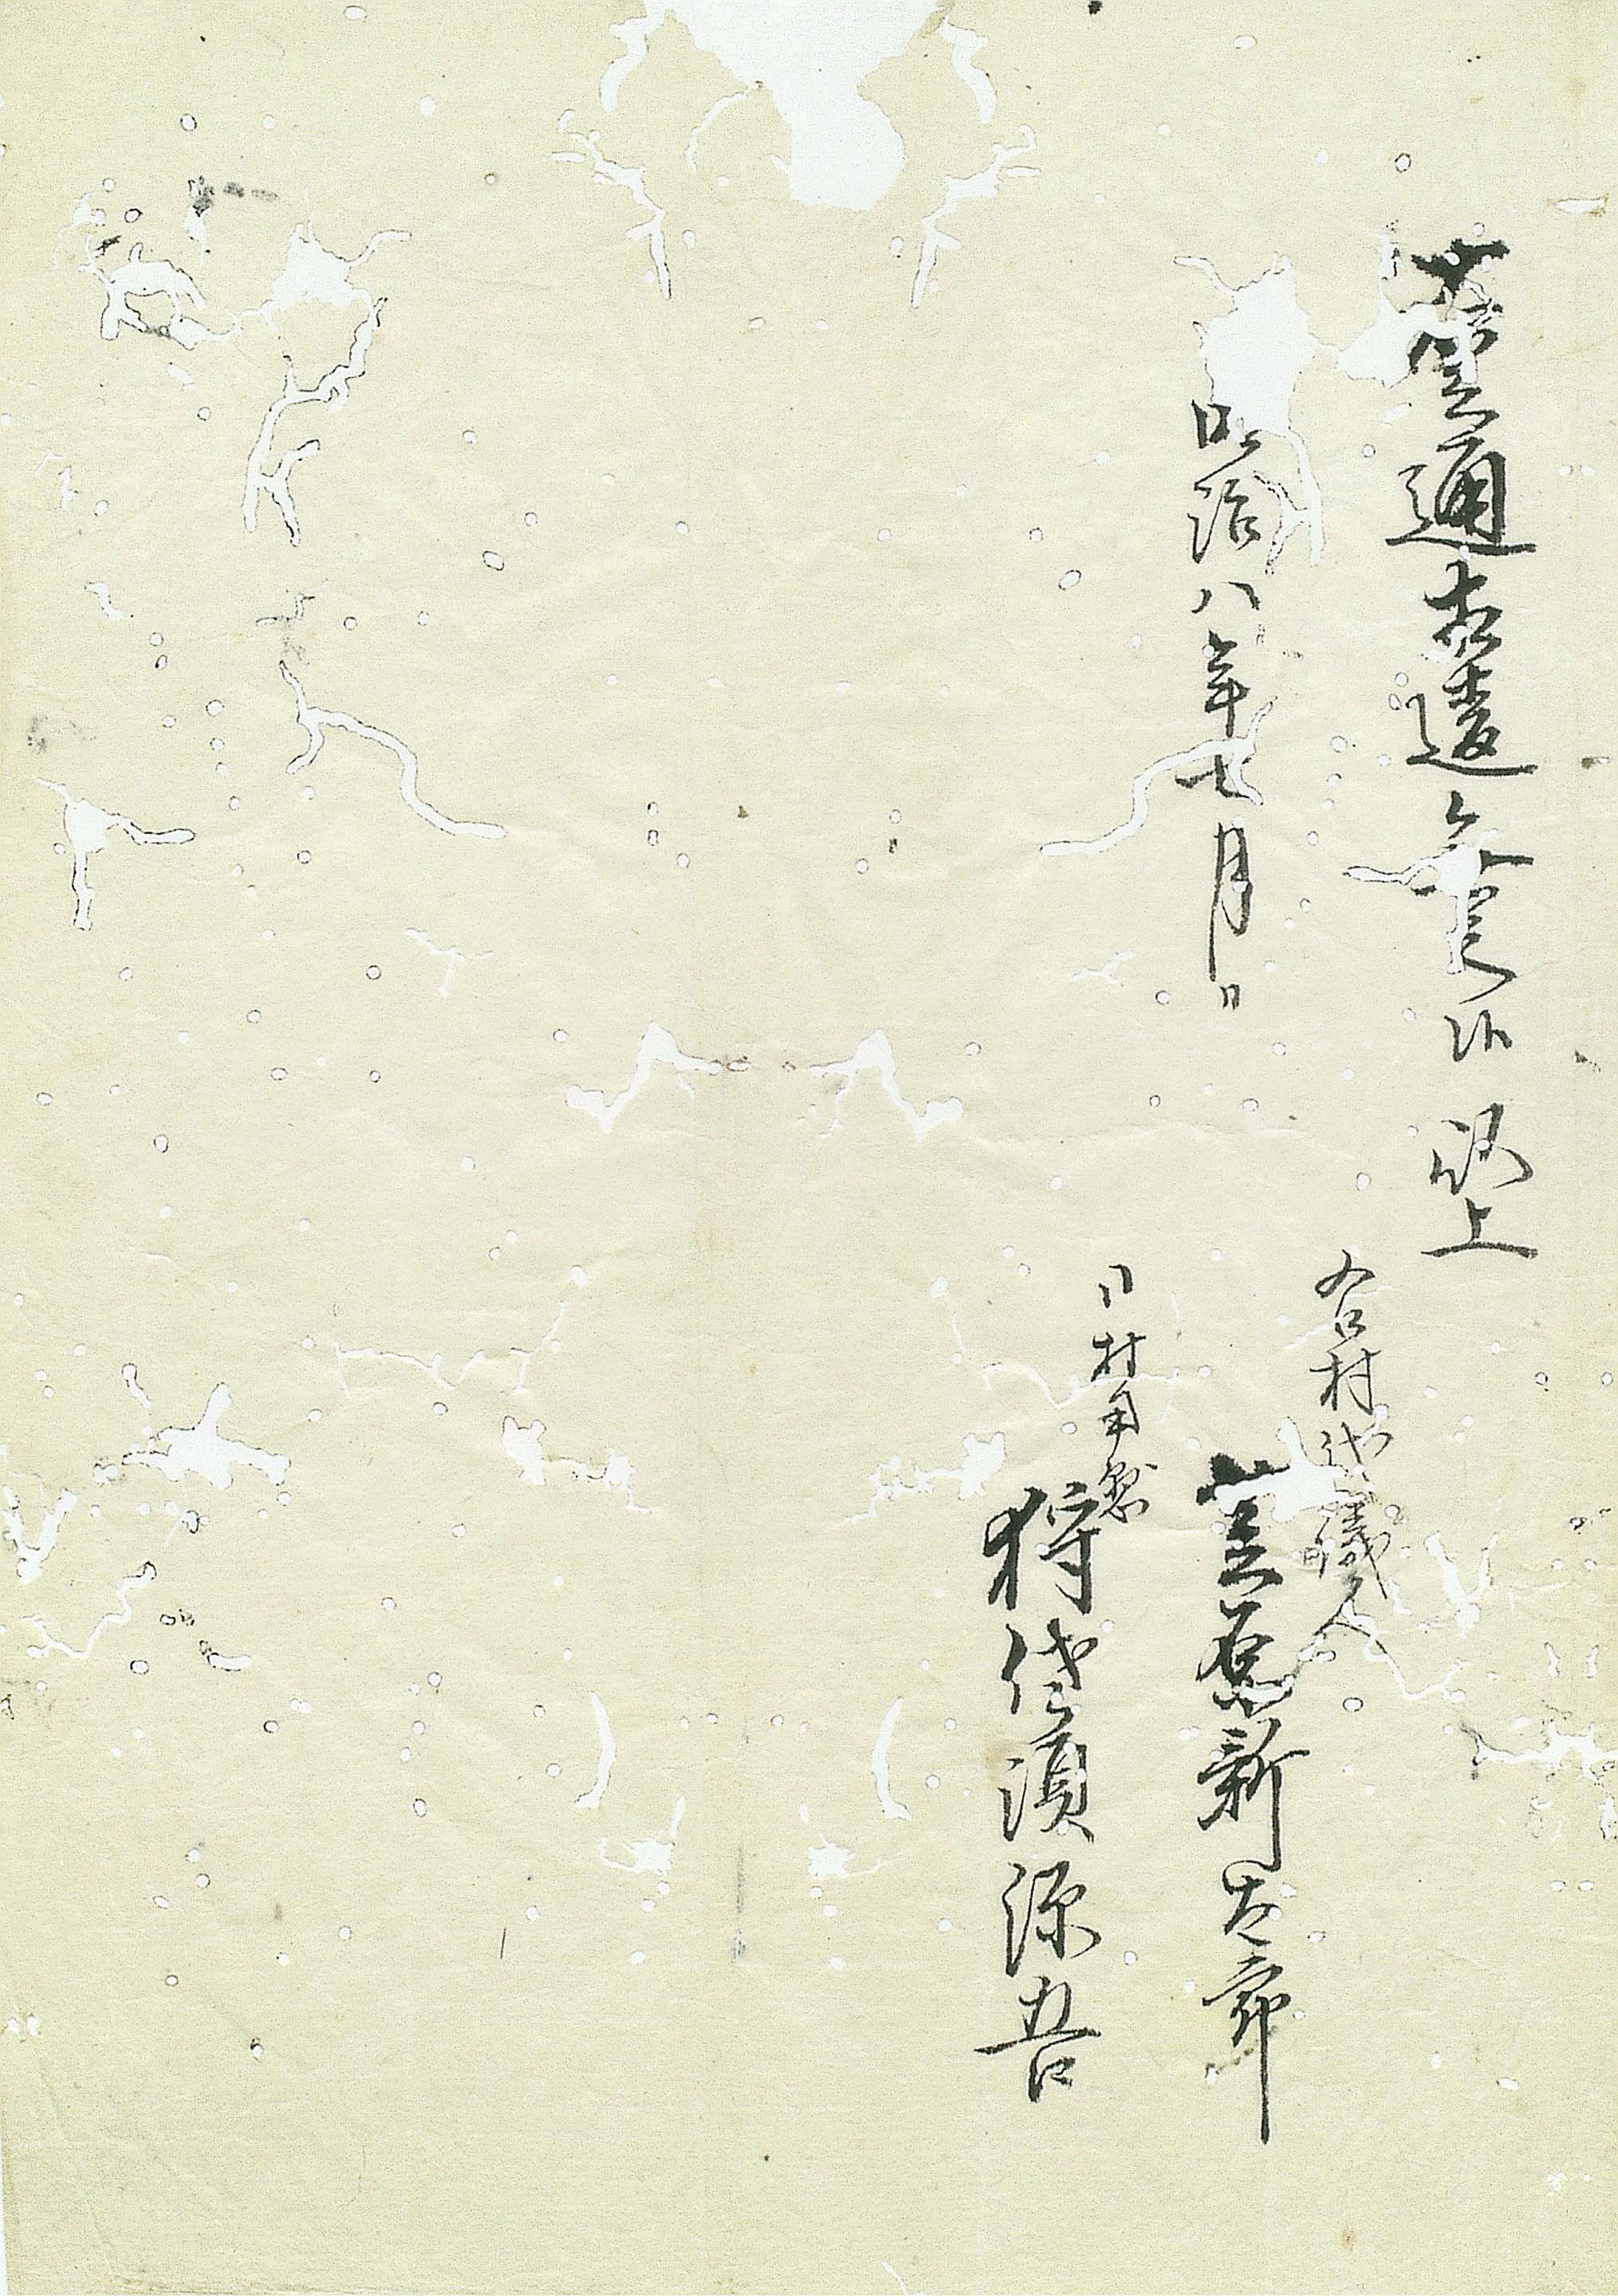 通相違無之候以上
明治八年七月日
右村代議人
原新太郎
同村用掛
狩俣須源吾